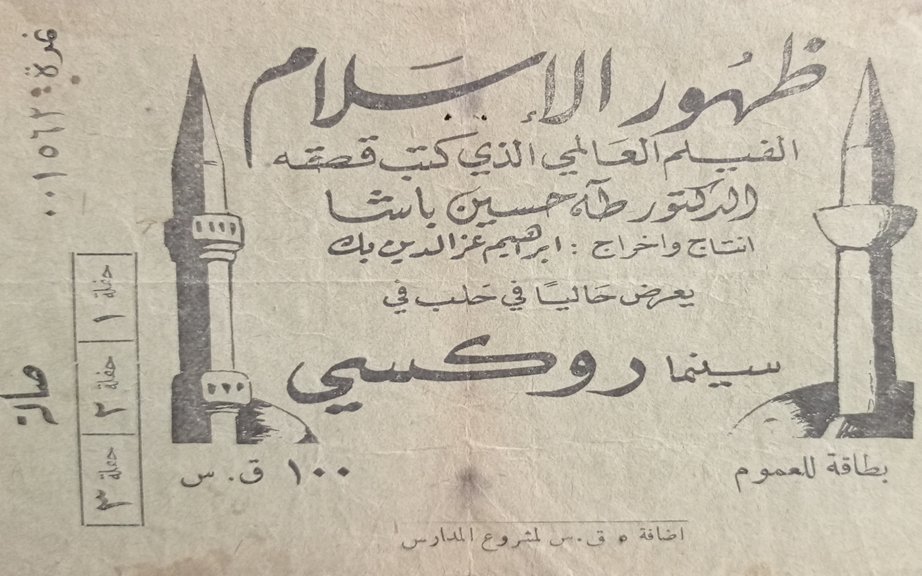 ظهُور الإسَلام
الفيلم العَالمي الذي كتب قصته
الدكتور طه حسين باشا
انتاج واخراج : ابراهيم عز الدين بك
يعرض حَاليًا في حَلب في
سينما روكسي
بطاقة للعموم
١٠٠ ق. س
اضافة ٥ ق.س لمشروع المدارس
نمرة: ٠٠١٥٦٢
صالة
حفلة ١
حفلة ٢
حفلة ٣